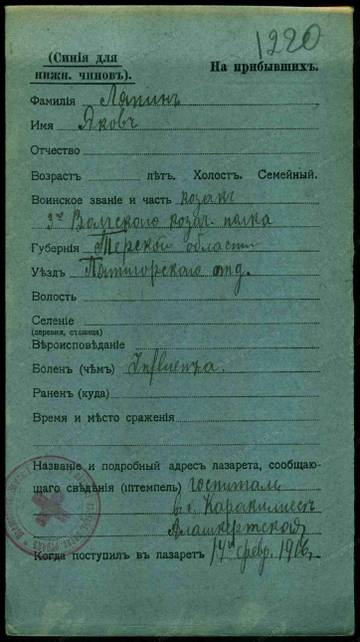 1220
(Синія для
нижн. чиновъ).
На прибывшихъ.
Фамилія Лапинъ
Имя Яковъ
Отчество
Возрастъ лѣтъ. Холост. Семейный.
Воинское званіе и часть козакъ
3го Волгского козач. полка
Губернія Терской области
Уѣздъ Пятигорскаго отд.
Волость
Селеніе
(деревня, станица)
Вѣроисповѣданіе
Боленъ (чѣмъ) Influenza.
Раненъ (куда)
Время и мѣсто сраженія
Названіе и подробный адресъ лазарета, сообщаю-
щаго свѣдѣнія (штемпель) госпиталь
в с. Каракилисѣ
Алашкертской
Когда поступилъ въ лазаретъ 14го февр. 1916,